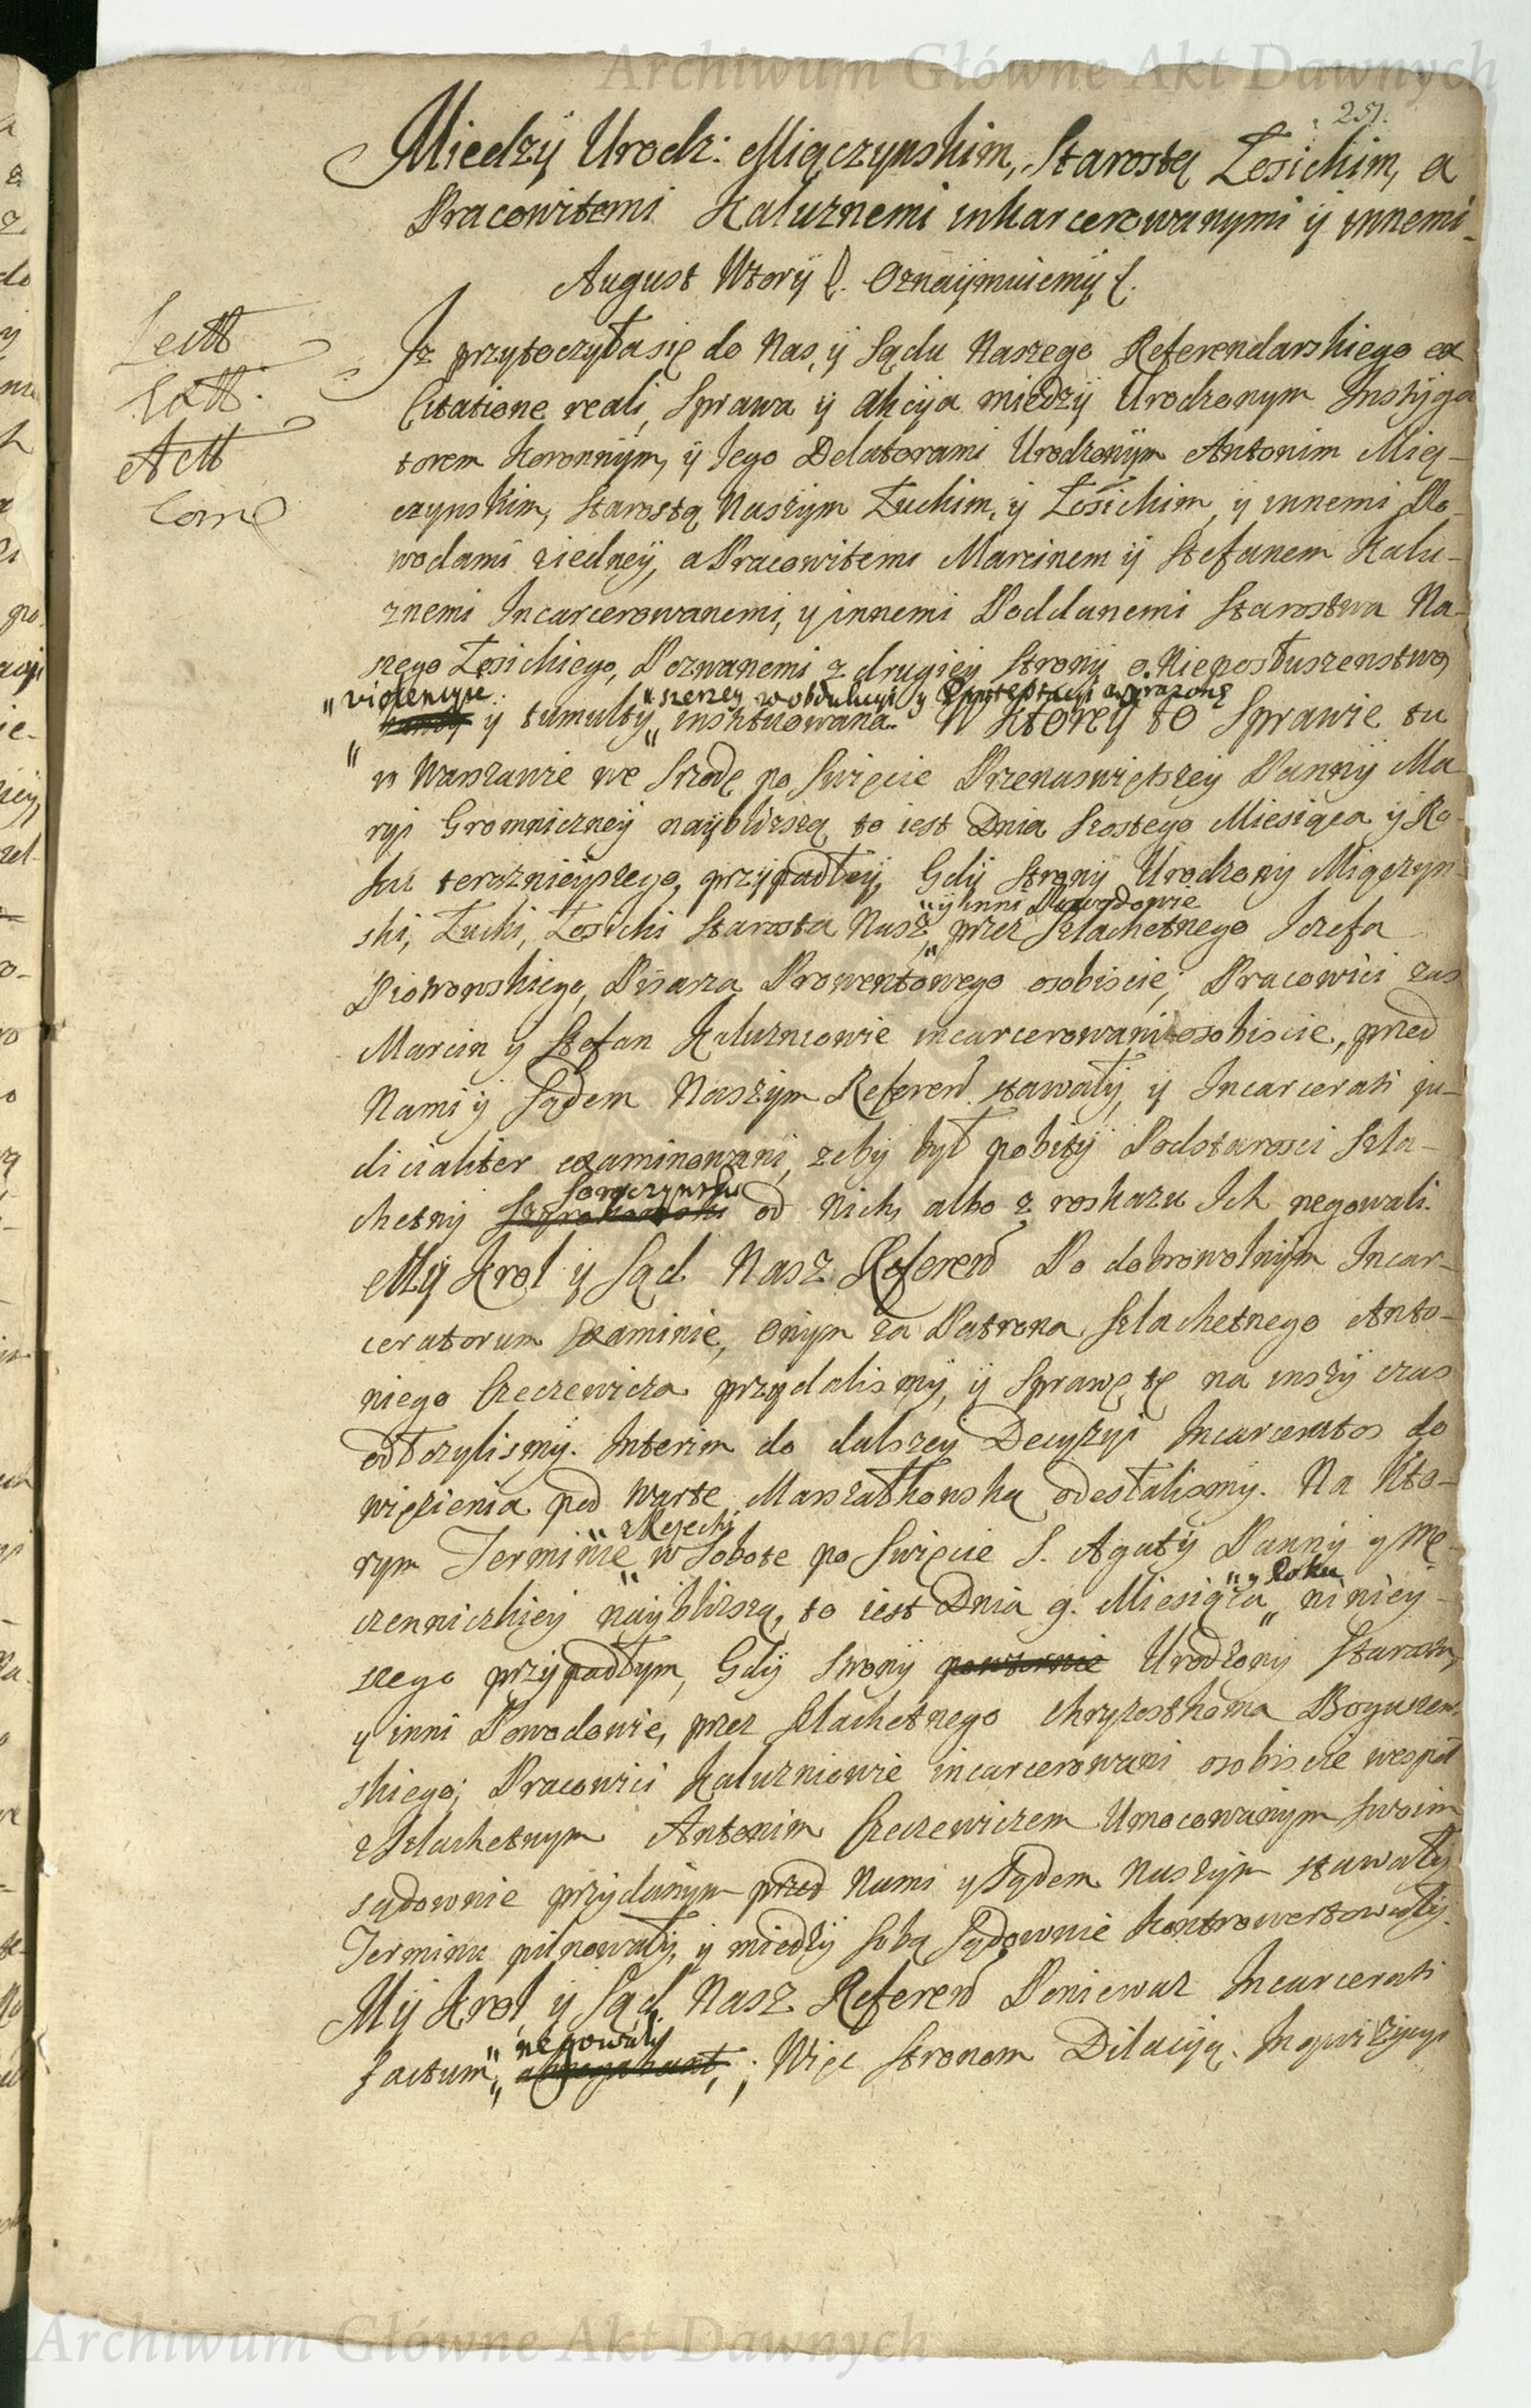 Archiwum Główne Akt Dawnych
251.
Miedzÿ Urodz: Miączynskim, Starostą Łosickim, a
Pracowitemi Kaluznemi inkarcerowanymi ÿ innemi.
August Wtorÿ &. Oznaÿmuiemÿ &.
Lectt
Actt
Corr
Iz przytoczyła się do Nas, ÿ Sądu Naszego Referendarskiego ex
Citatione reali, Sprawa ÿ akcÿa miedzÿ Urodzonym Instÿga
torem Koronnÿm, ÿ Jego Delatorami Urodzonÿm Antonim Mią-
czynskim, Starostą Naszÿm Łuckim, ÿ Łosickim, ÿ innemi Po-
wodami ziedneÿ, a Pracowitemi Marcinem ÿ Stefanem Kalu-
znemi Incarcerowanemi, y innemi Poddanemi Starostwa Na-
szego Łosickiego, Pozwanemi z drugieÿ Stronÿ o Nieposłuszenstwo,
" violencyie " szerzey w obdukcyi y Protestacyi wyrażone
ÿ tumultÿ " instituowana. W ktoreÿ to Sprawie tu
w Warszawie we Srzodę po Swięcie Przenaswiętszey Pannÿ Ma
ryi Gromniczneÿ naÿblizszą to iest Dnia Szostego Miesiąca ÿ Ro-
ku teraznieÿszego, przÿpadłeÿ, Gdÿ Stronÿ Urodzonÿ Miączyn-
" ÿ inni Powodowie
ski, Łucki, Łosicki Starosta Nasz " przez Szlachetnego Jozefa
Piotrowskiego, Pisarza Prowentowego osobiscie; Pracowici zas
Marcin ÿ Stefan Kaluzniowie incarcerowani osobiscie, przed
Nami ÿ Sądem Naszÿm Referen stawałÿ, ÿ Incarcerati ju-
dicialiter examinowani, zebÿ bÿł pobitÿ Podstarosci Szla-
chetnÿ od nich, albo z roskazu Ich negowali.
Mÿ Krol ÿ Sąd Nasz Referen Po dobrowolnÿm Incar-
ceratorum Examinie, Onÿm za Patrona Szlachetnego Anto-
niego Czeczewicza przydalismÿ, ÿ Sprawę tę na inszÿ czas
odłozylismÿ. Interim do dalszeÿ Decyzyi Incarceratos do
więzienia pod Warte Marszałkowską odesłalismy. Na Kto-
rym Terminie " w Sobote po Swięcie S. Agatÿ Pannÿ y Mę-
" y Roku
czenniczkieÿ naÿblizszą, to iest Dnia 9. Miesiąca " niniey-
szego przÿpadłym, Gdÿ Stronÿ powtornie Urodzonÿ Starosta,
y inni Powodowie, przez Szlachetnego Chryzostoma Boguszew-
skiego; Pracowici Kaluzniowie incarcerowani osobiscie wespoł
z Szlachetnym Antonim Czeczewiczem Umocowanÿm Swoim
sądownie przÿdanÿm przed Nami y Sądem Naszÿm stawałÿ
Terminu pilnowałÿ, y miedzÿ sobą Sądownie kontrowertowałÿ.
Mÿ Krol ÿ Sąd Nasz Referen Poniewaz Incarcerati
" negowalÿ
factum " ; Więc Stronom Dilacÿą Inquizÿcyi
Archiwum Główne Akt Dawnych